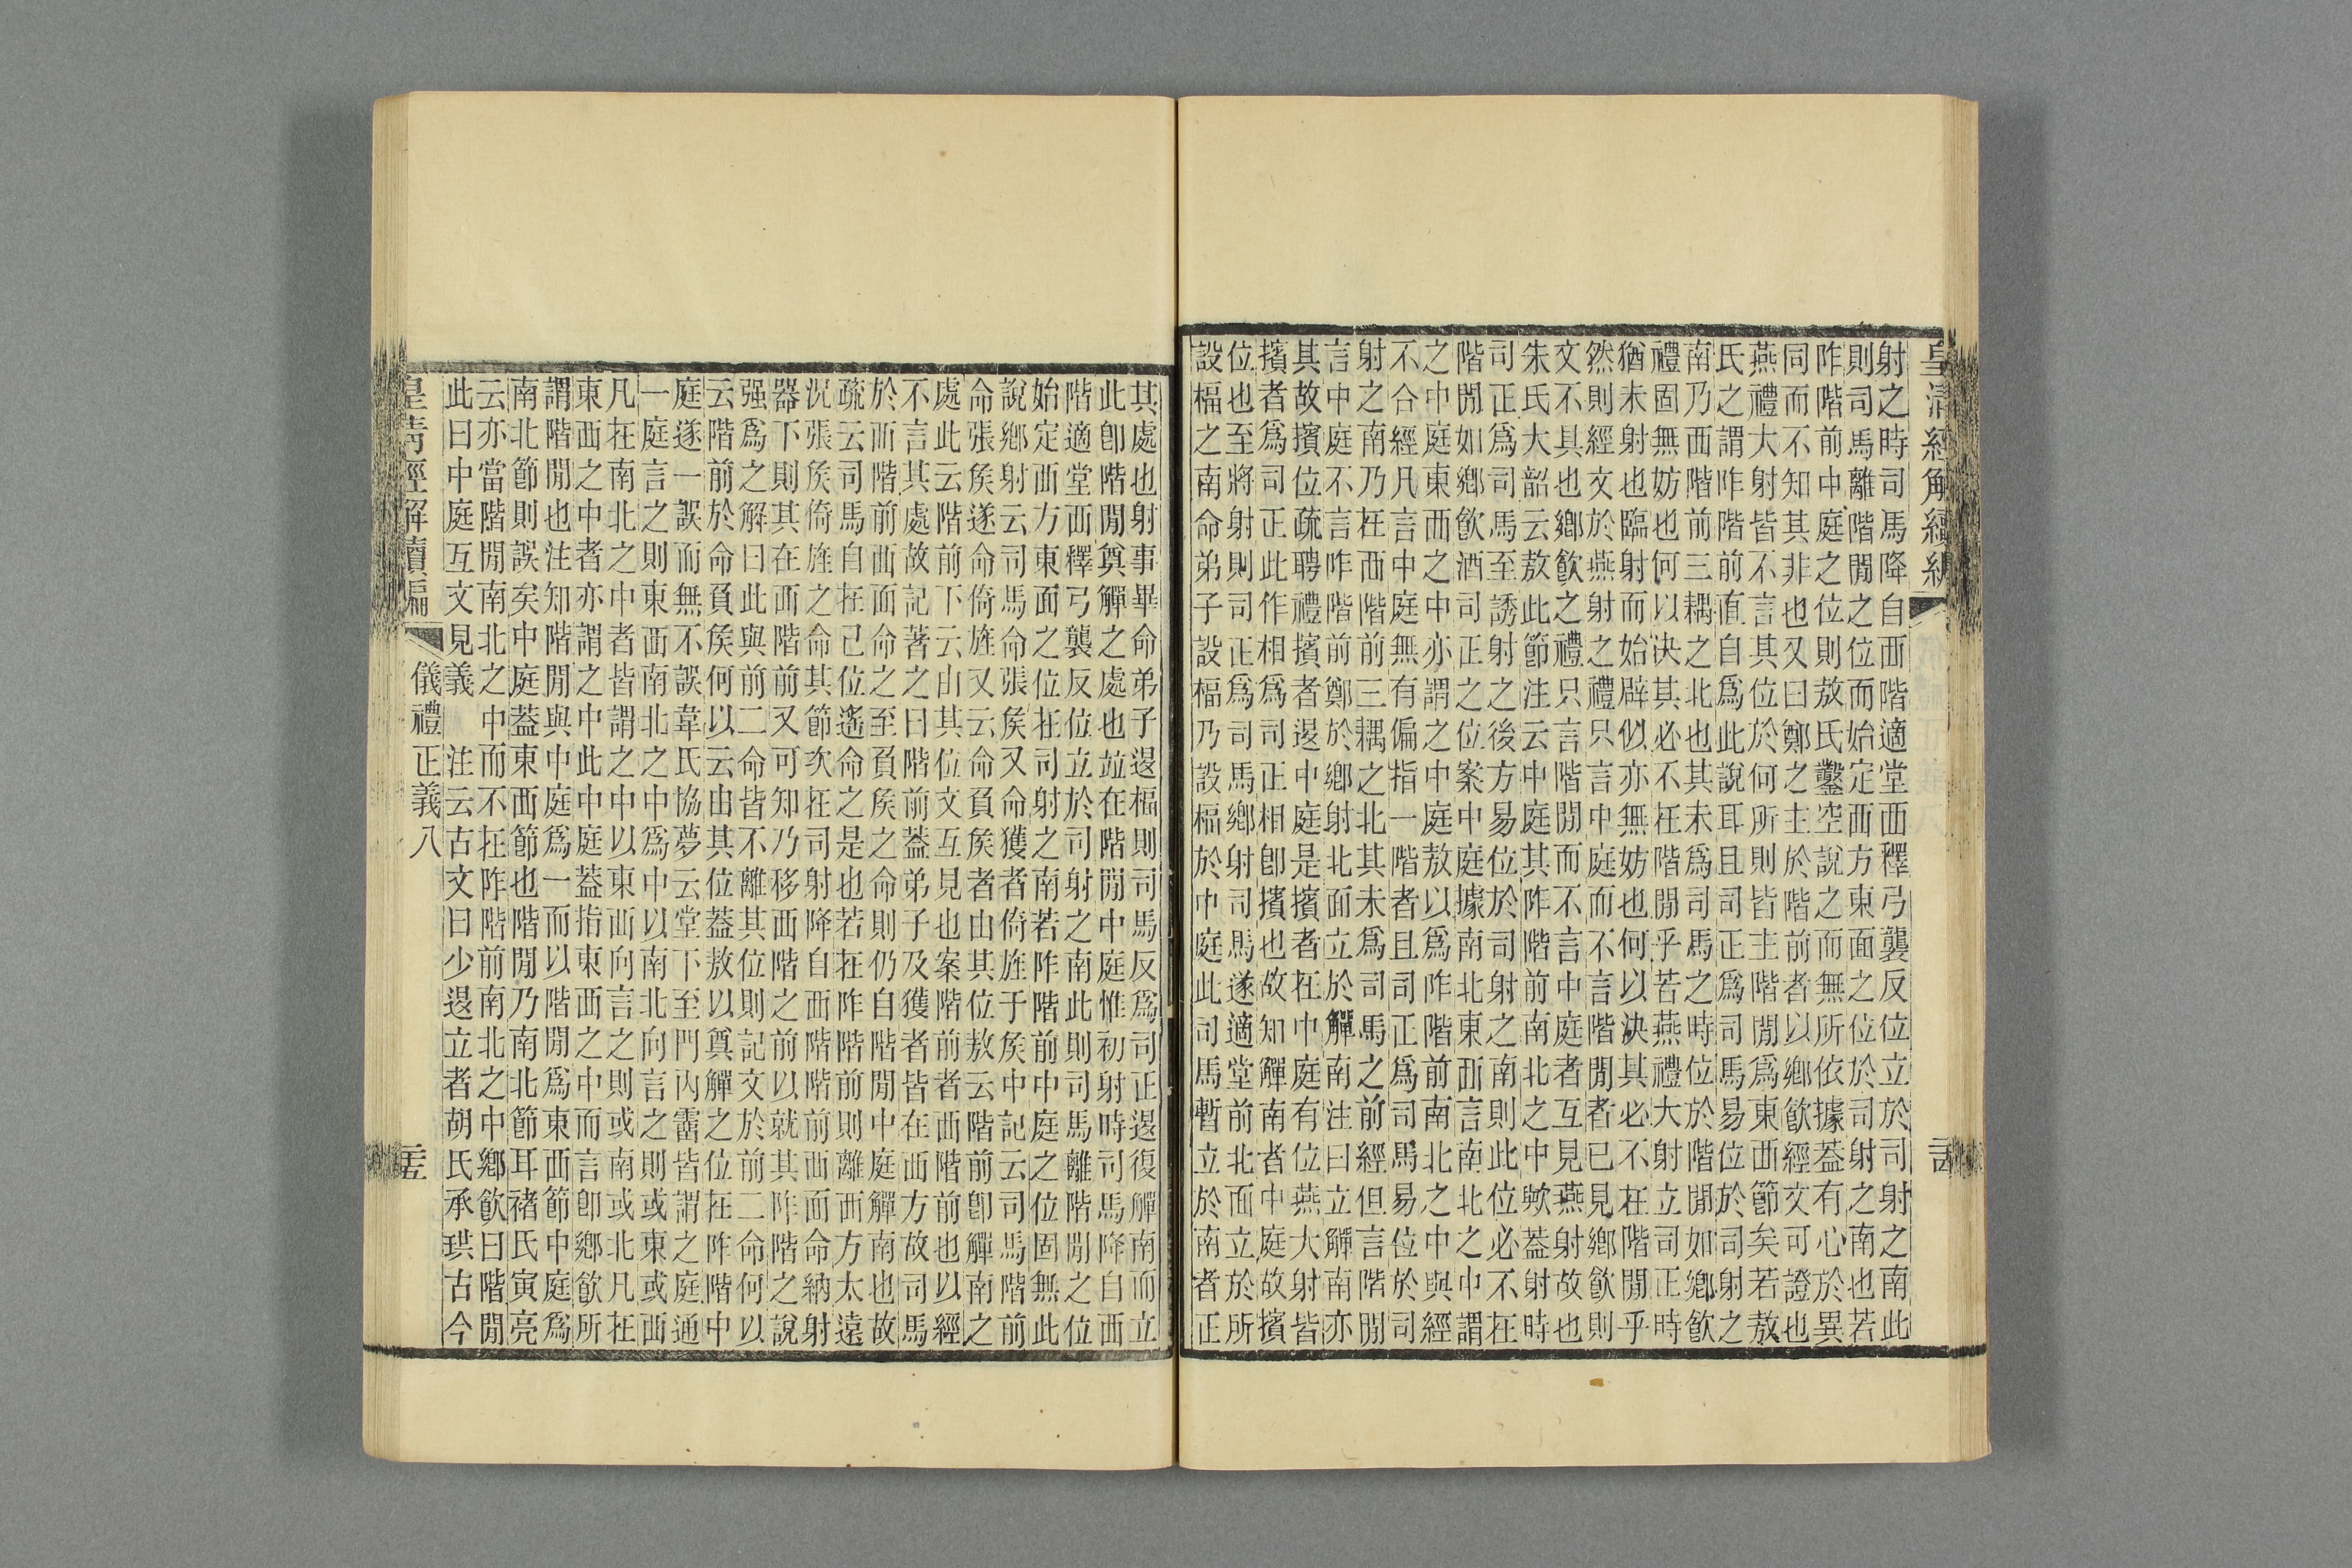 皇清經解續編
射之時司馬降自西階適堂西釋弓襲反位立於司射之南此
則司馬離階閒之位而始定西方東面之位於司射之南也若
阼階前中庭之位則敖氏鑿空說之而無所依據蓋有心於異
同而不知其非也又曰鄭之主於階前者以鄉飲經文可證也
燕禮大射皆不言其位於何所則皆主階閒爲東西節矣若敖
氏之謂阼階前直自爲此說耳且司正爲司馬易位於司射之
南乃西階前三耦之北也其未爲司馬之時位於階閒如鄉飲
禮固無妨也何以决其必不在階閒乎若燕禮大射立司正時
猶未射也臨射而始辟似亦無妨也何以決其必不在階閒乎
然則經文於燕射之禮只言中庭而不言階閒者已見鄉飲則
文不具也鄉飲之禮只言階閒而不言中庭者互見燕射故也
朱氏大韶云敖此節注云中庭其阼階前南北之中歟蓋射時
司正爲司馬至誘射之後方易位於司射之南則此位必不在
階閒如鄉飲酒司正之位案中庭據南北東西言南北之中謂
之中庭東西之中亦謂之中庭敖以爲阼階前南北之中與經
不合經凡言中庭無有偏指一階者且司正爲司馬易位於司
射之南乃在西階前三耦之北其未爲司馬之前經但言階閒
言中庭不言阼階前鄭於鄉射北面立於觶南注曰立觶南亦
其故擯位疏聘禮擯者退中庭是擯者在中庭有位燕大射皆
擯者爲司正此作相爲司正相卽擯也故知觶南者中庭故擯
位也至將射則司正爲司馬鄉射司馬遂適堂前北面立於所
設楅之南命弟子設楅乃設楅於中庭此司馬暫立於南者正
其處也射事畢命弟子退楅則司馬反爲司正退復觶南而立
此卽階閒奠觶之處也竝在階閒中庭惟初射時司馬降自西
階適堂西釋弓襲反位立於司射之南此則司馬離階閒之位
始定西方東面之位在司射之南若阼階前中庭之位固無此
說鄉射云司馬命張侯又命獲者倚旌于侯中記云司馬階前
命張侯遂命倚旌又云命負侯者由其位敖云階前卽觶南之
處此云階前下云由其位文互見也案階前者西階前也以經
不言其處故記著之曰階前蓋弟子及獲者皆在西方故司馬
於西階前西面命之至負侯之命則仍自階閒中庭觶南也故
疏云司馬自在己位遙命之是也若在阼階前則離西方太遠
況張侯倚旌之命其節次在司射降自西階階前西面命納射
器下則其在西階前又可知乃移西階之前以就其阼階之說
强爲之解曰此與前二命皆不離其位則記文於前二命何以
云階前於命負侯何以云由其位蓋敖以奠觶之位在阼階中
庭遂一誤而無不誤韋氏協夢云堂下至門內霤皆謂之庭通
一庭言之則東西南北之中爲中以南北向言之則或東或西
凡在南北之中者皆謂之中以東西向言之則或南或北凡在
東西之中者亦謂之中此中庭蓋指東西之中而言卽鄉飲所
謂階閒也注知階閒與中庭爲一而以階閒爲東西節中庭爲
南北節則誤矣中庭蓋東西節也階閒乃南北節耳褚氏寅亮
云亦當階閒南北之中而不在阼階前南北之中鄉飲曰階閒
此曰中庭互文見義 注云古文曰少退立者胡氏承珙古今
皇清經解續編 儀禮正義八